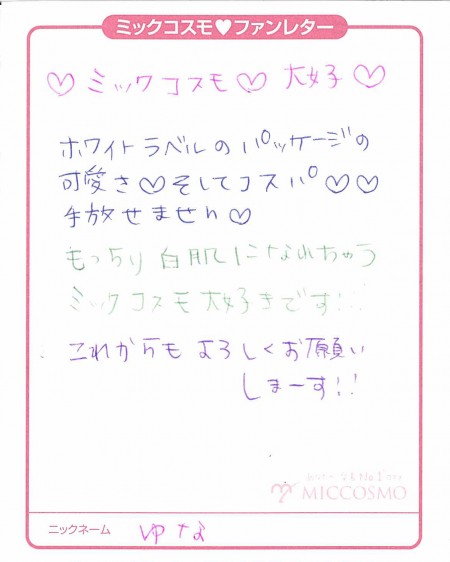 ミックコスモ♥ファンレター
♡ミックコスモ♡大好♡
ホワイトラベルのパッケージの
可愛さ♡そしてコスパ♡♡
手放せません♡
もっちり白肌になれちゃう
ミックコスモ大好きです!!
これからもよろしくお願い
しまーす!!
MICCOSMO
ニックネーム ゆな